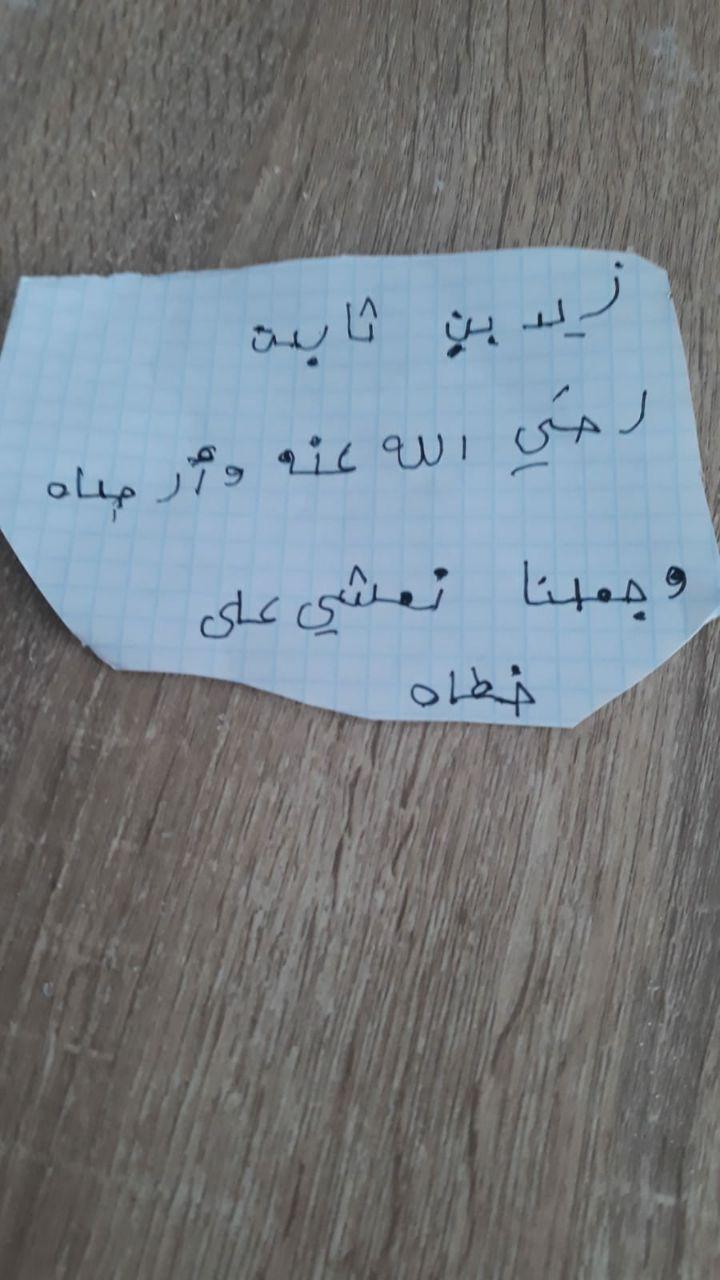 زيد بن ثابت
رضي الله عنه وأرضاه
وجعلنا نمشي على
خطاه